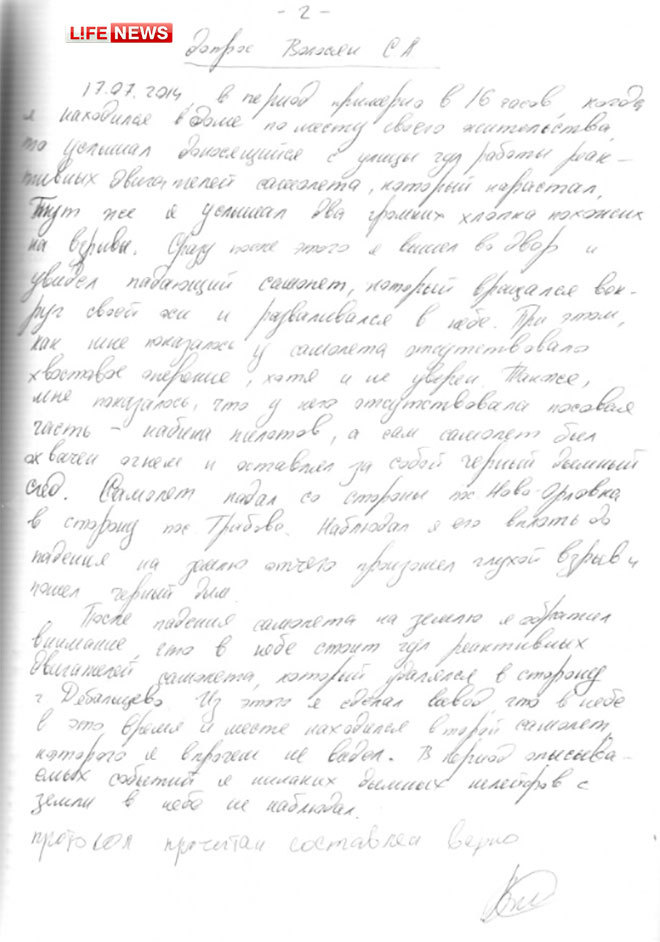 - 2 -
LIFE NEWS
допрос С А
17.07.2014 в период примерно в 16 часов, когда
я находился в доме по месту своего жительства,
то услышал доносящийся с улицы гул работы реак-
тивных двигателей самолета, который нарастал,
Тут же я услышал два громких хлопка похожих
на взрывы. Сразу после этого я вышел во двор и
увидел падающий самолет, который вращался вок-
руг своей оси и разваливался в небе. При этом,
как мне показалось у самолета отсутствовало
хвостовое оперение, хотя и не уверен. Также,
мне показалось, что у него отсутствовала носовая
часть - кабина пилотов, а сам самолет был
охвачен огнем и оставлял за собой черный дымный
след. Самолет падал со стороны пос. Ново-Орловка
в сторону пос Грабово. Наблюдал я его вплоть до
падения на землю отчего произошел глухой взрыв и
пошел черный дым.
После падения самолета на землю я обратил
внимание, что в небе стоит гул реактивных
двигателей самолета, который удалялся в сторону
г Дебальцево. Из этого я сделал вывод, что в небе
в это время и месте находился второй самолет,
которого я впрочем не видел. В период описыва-
емых событий я никаких дымных шлейфов с
земли в небо не наблюдал.
протокол прочитан составлен верно